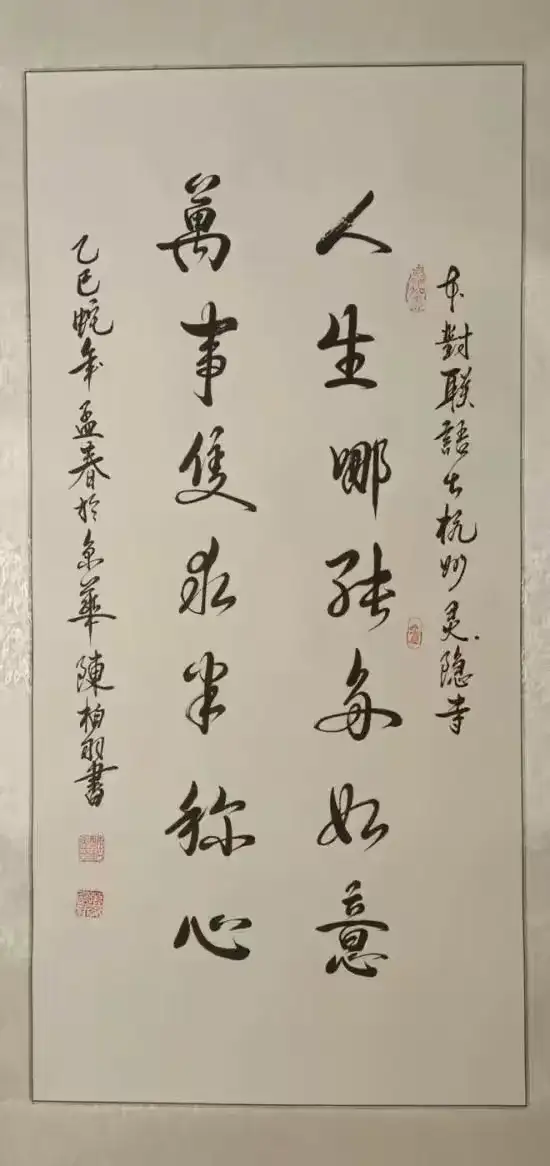 本對联語出杭州灵隐寺
人生哪能多如意
萬事隻求半称心
乙巳蛇年孟春於京華陳柏羽書